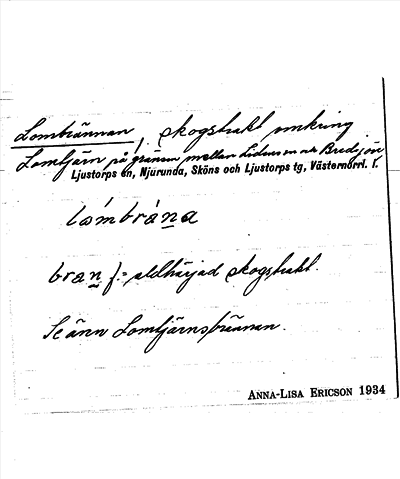 Lombrännan, skogstrakt omkring
Lomtjärn på gränsen mellan Lidens sn och Bredsjön
Ljustorps sn, Njurunda, Sköns och Ljustorps tg, Västernorrl. l.
lo̤mbrána
bran f. = eldhärjad skogstrakt.
Se änn Lomtjärnsbrännan.
ANNA-LISA ERICSON 1934